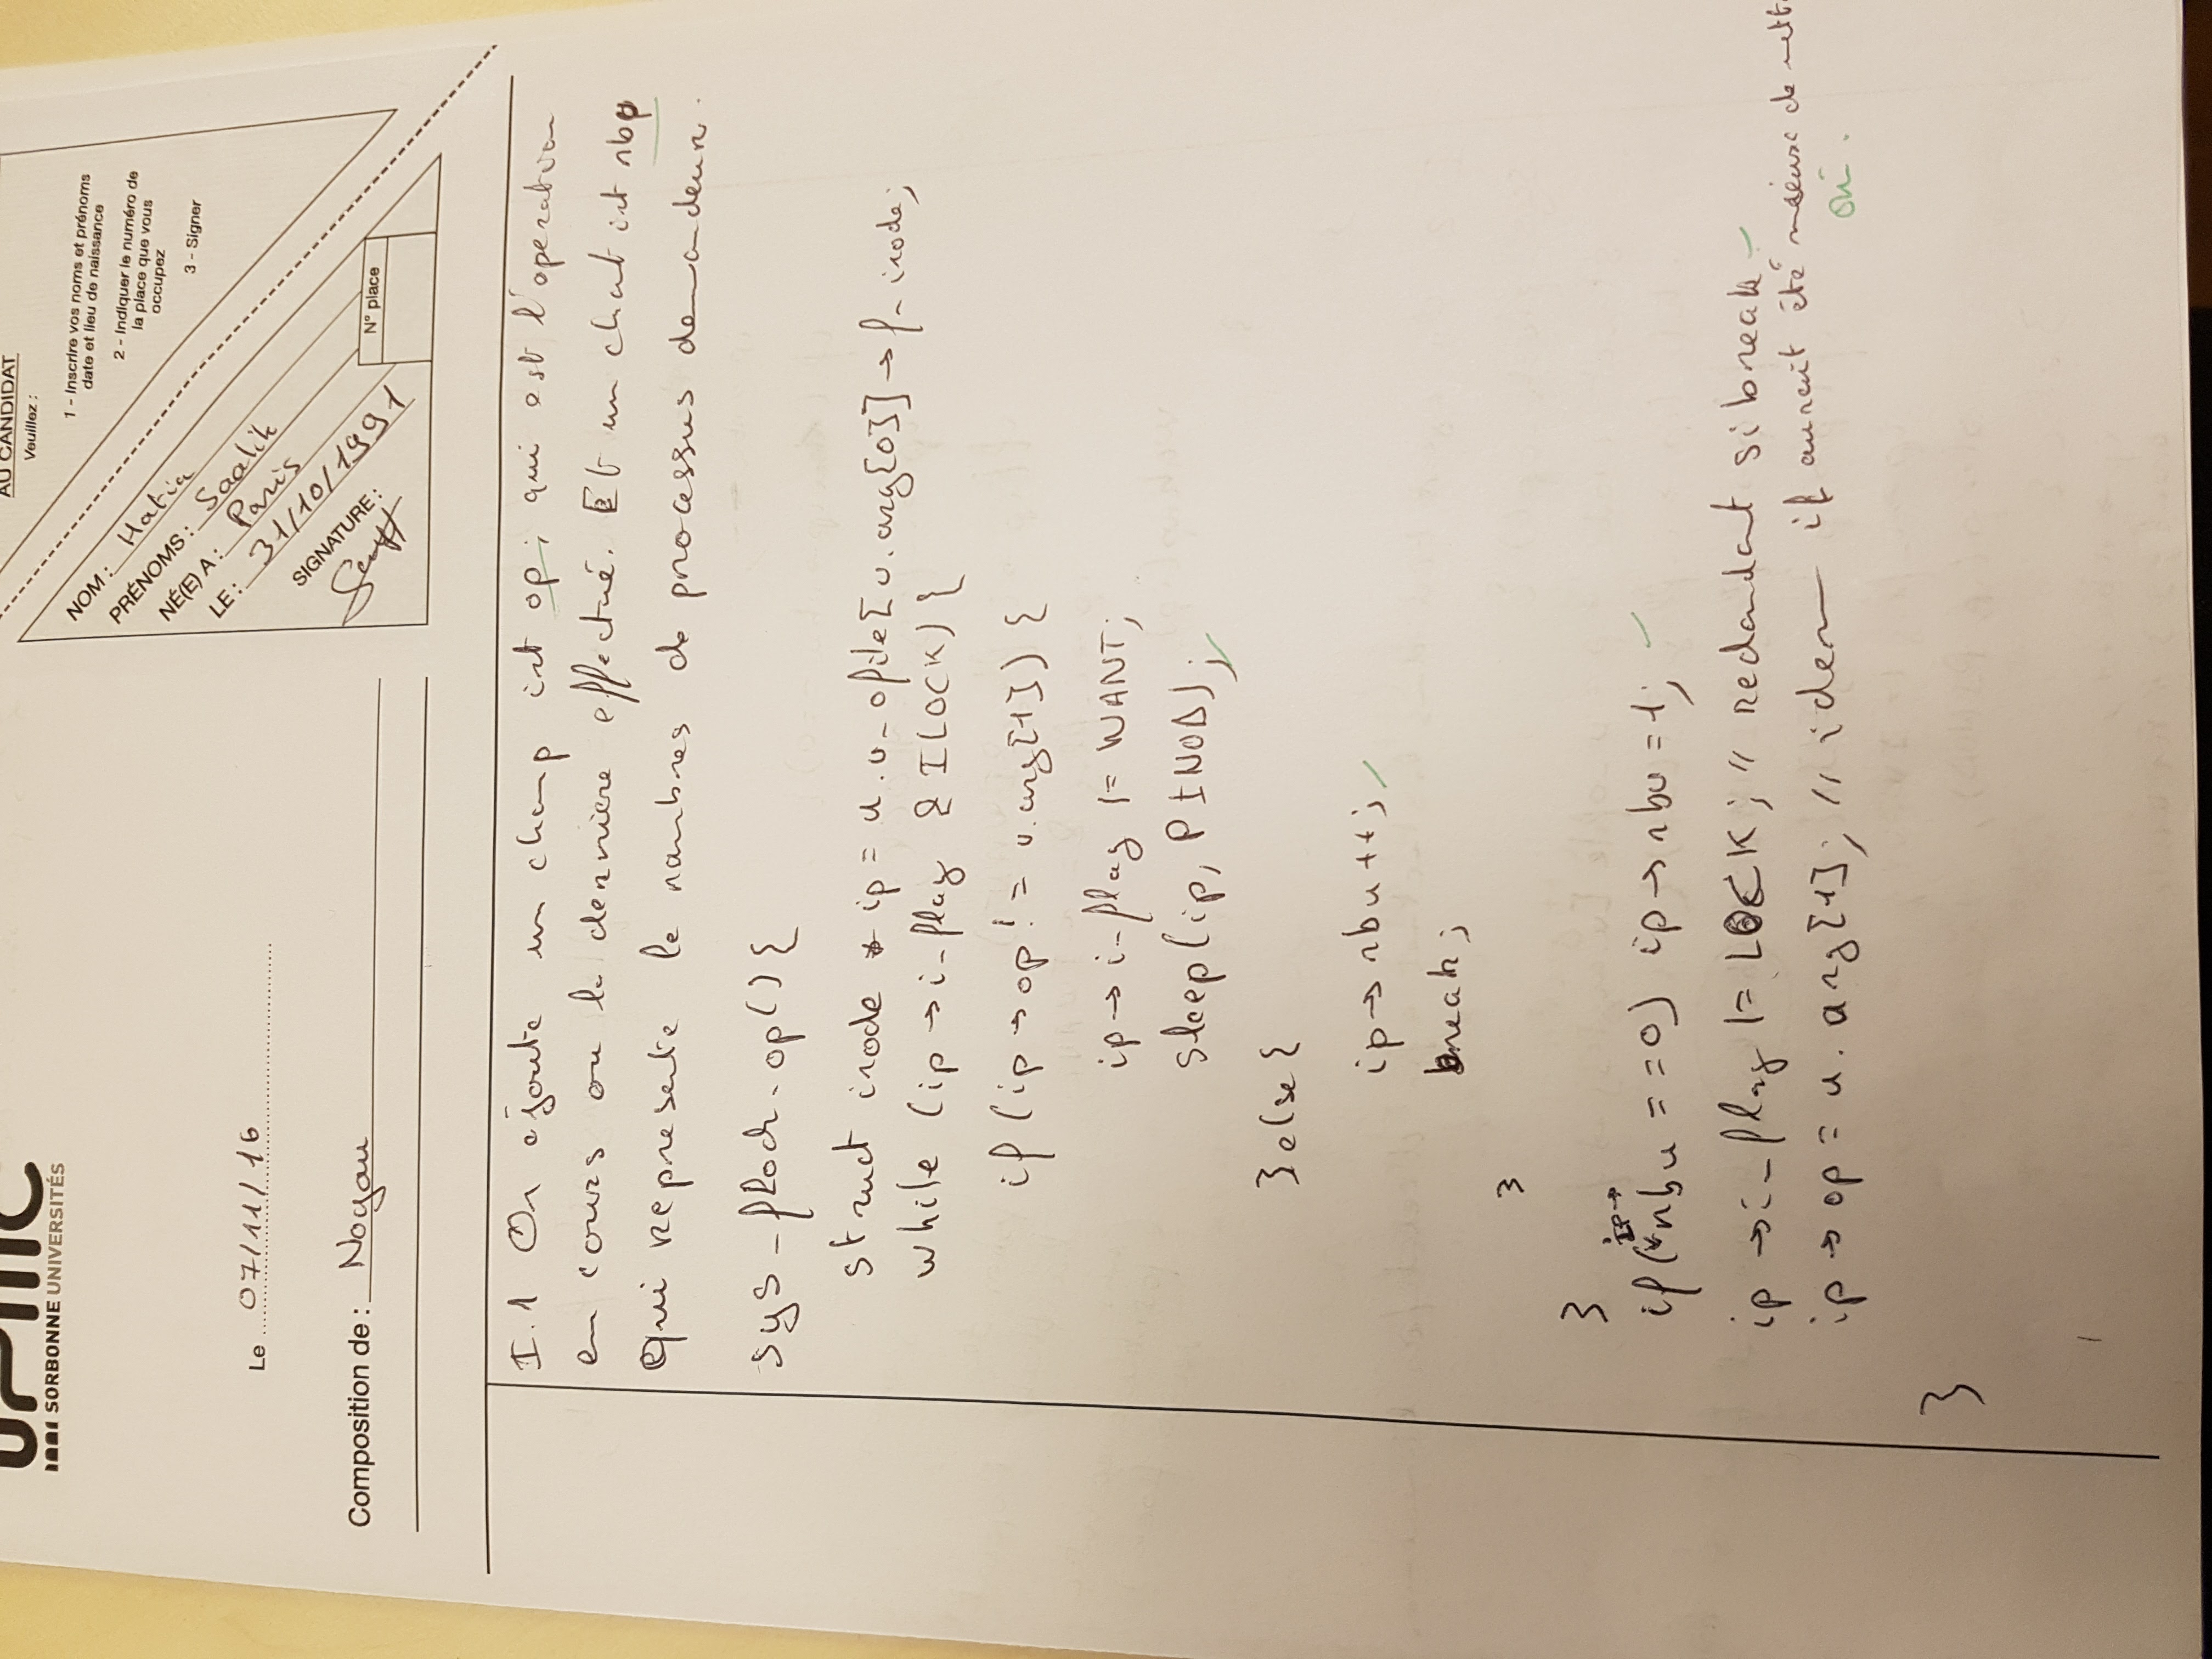 UPMC
SORBONNE UNIVERSITÉS
AU CANDIDAT
Veuillez :
1 - Inscrire vos noms et prénoms
date et lieu de naissance
2 - Indiquer le numéro de
la place que vous
occupez
3 - Signer
NOM : Hatia
PRÉNOMS : Saalik
NÉ(E) A : Paris
LE : 31/10/1991
SIGNATURE :
N° place
Le 07/11/16
Composition de : Noyau
I.1 On ajoute un champ int op; qui est l'operation
en cours ou la derniere effectué. Et un chant int nbu
Qui represente le nombres de processus demandeur.
sys_flock_op(){
struct inode * ip = u.u_ofile[u.arg[0]]→f_inode;
while (ip→i_flag & ILOCK) {
if (ip→op != u.arg[1]) {
ip→i_flag |= WANT;
sleep(ip, PINOD);
}else{
ip→nbu++;
break;
}
}
if(ip→nbu == 0) ip→nbu=1;
ip→i_flag |= LOCK; // redondant si break
ip→op = u.arg[1]; // idem il aurait été mieux de
oui.
}